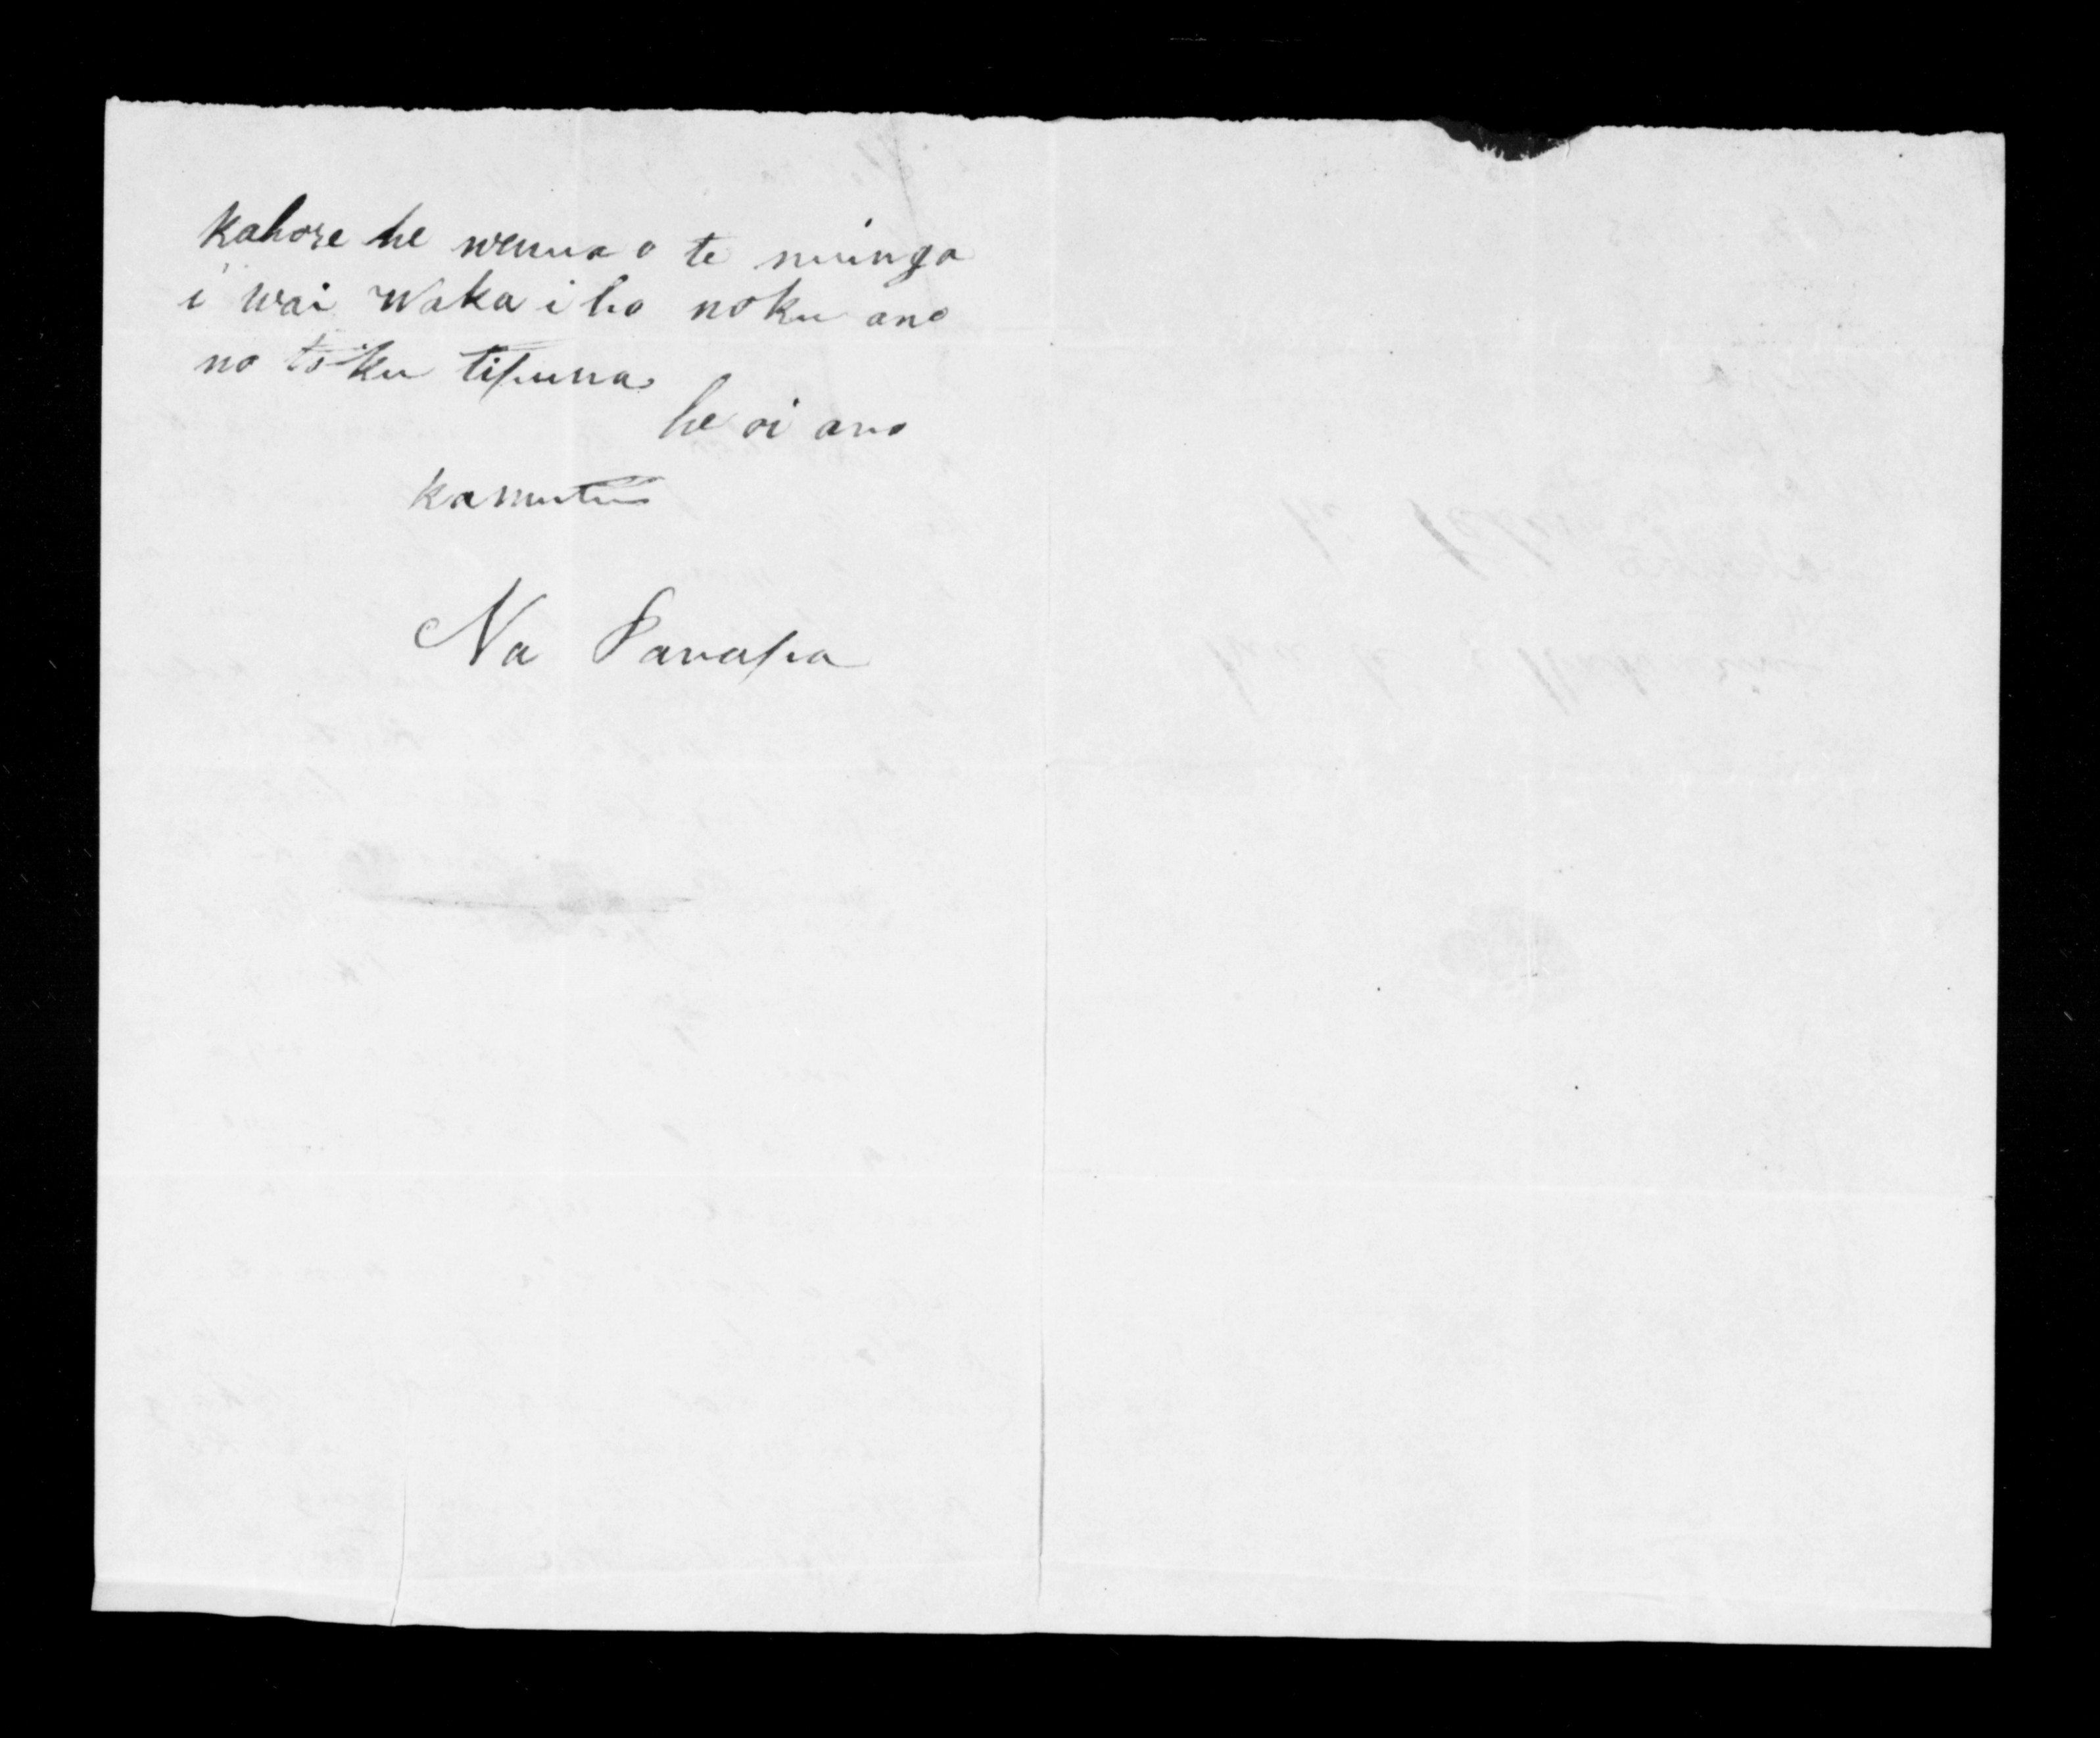 kahore he wenua o te minga
i wai waka i ho noku ano
no toku tipuna
he oi ano
kamutu
Na Parapa